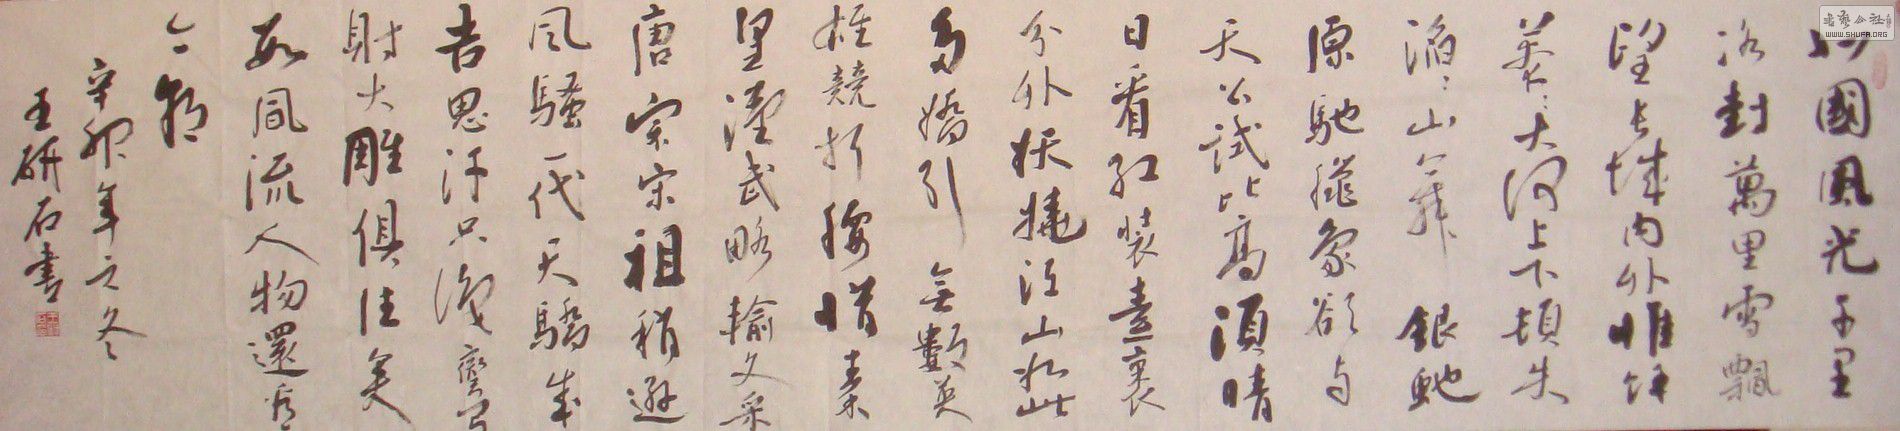 北國風光千里
冰封萬里雪飄
望長城內外惟餘
莽々大河上下頓失
滔々山舞銀蛇
原馳臘象欲与
天公試比高須晴
日看紅裝素裹
分外妖嬈江山如此
多嬌引無數英
雄競折腰惜秦
皇漢武略輸文采
唐宗宋祖稍遜
風騷一代天驕成
吉思汗只識彎弓
射大雕俱往矣
數風流人物還看
今朝
辛卯年之冬
王研石書
書藝公社
WWW.SHUFA.ORG